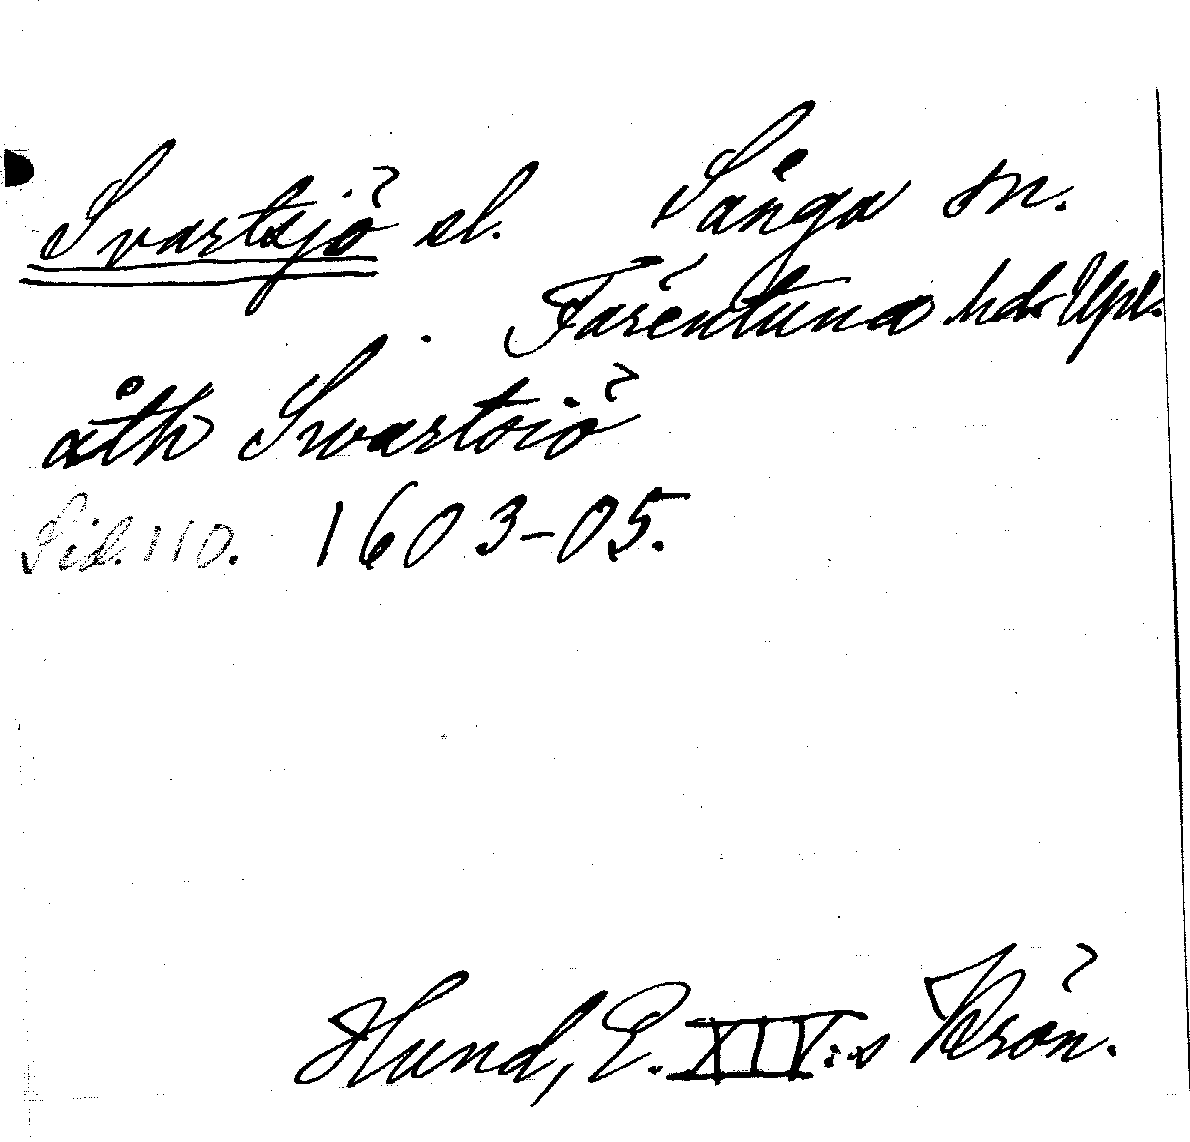 Svartsjö sl. Sånga sn.
Färentuna hd. Upl.
åth Swartsiö
Sid. 110. 1603-05.
Hund, E. XIV:s Krön.